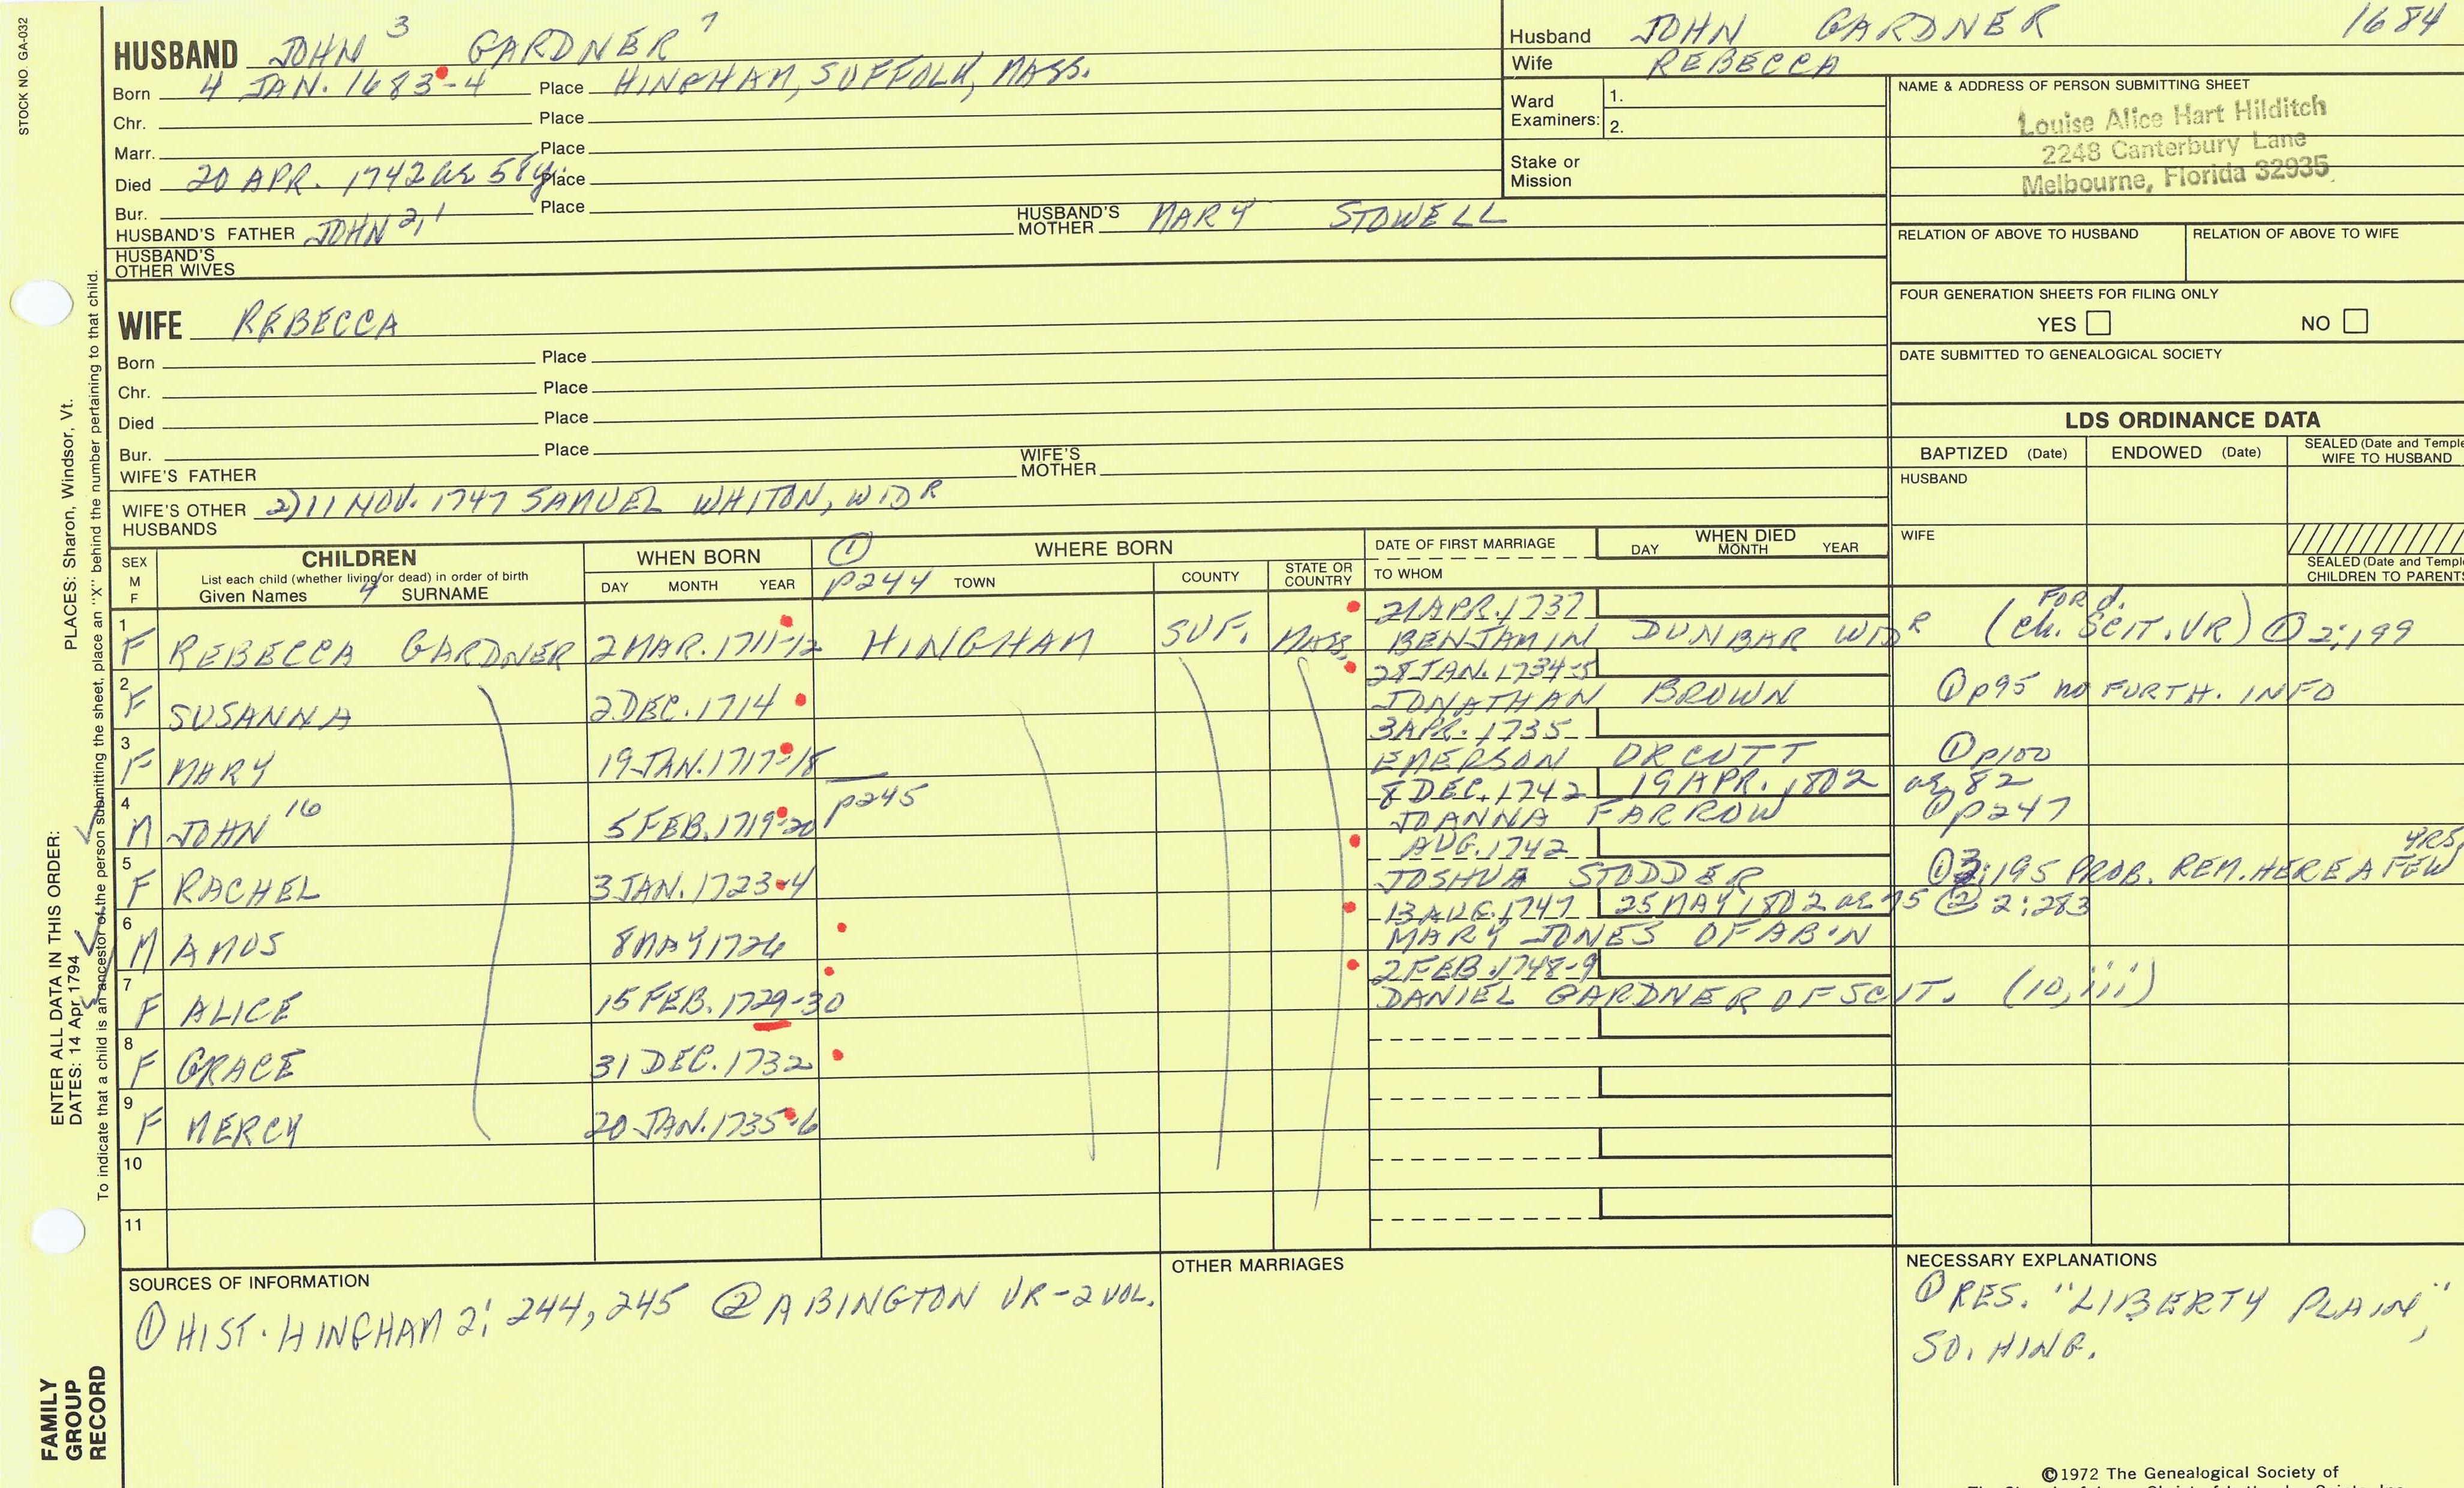 STOCK NO. GA-032
HUSBAND JOHN 3 GARDNER 7
Born 4 JAN. 1683-4 Place HINGHAM, SUFFOLK, MASS.
Chr. Place
Marr. Place
Died 20 APR. 1742 ae 58y. Place
Bur. Place
HUSBAND'S FATHER JOHN 2,1 HUSBAND'S MOTHER MARY STOWELL
HUSBAND'S OTHER WIVES
Husband JOHN GARDNER 1684
Wife REBECCA
Ward Examiners: 1.
2.
Stake or Mission
NAME & ADDRESS OF PERSON SUBMITTING SHEET
Louise Alice Hart Hilditch
2248 Canterbury Lane
Melbourne, Florida 32935
RELATION OF ABOVE TO HUSBAND RELATION OF ABOVE TO WIFE
FOUR GENERATION SHEETS FOR FILING ONLY
YES NO
DATE SUBMITTED TO GENEALOGICAL SOCIETY
WIFE REBECCA
Born Place
Chr. Place
Died Place
Bur. Place
WIFE'S FATHER WIFE'S MOTHER
WIFE'S OTHER HUSBANDS 2) 11 NOV. 1747 SAMUEL WHITON, WIDR
LDS ORDINANCE DATA
BAPTIZED (Date) ENDOWED (Date) SEALED (Date and Temple
WIFE TO HUSBAND
HUSBAND
WIFE
SEALED (Date and Temple
CHILDREN TO PARENTS
SEX M F
CHILDREN
List each child (whether living or dead) in order of birth
Given Names 4 SURNAME
WHEN BORN
DAY MONTH YEAR
① WHERE BORN
p244 TOWN COUNTY STATE OR COUNTRY
DATE OF FIRST MARRIAGE
TO WHOM
WHEN DIED
DAY MONTH YEAR
21 APR. 1737 FOR d.
1 F REBECCA GARDNER 2 MAR. 1711-12 HINGHAM SUF. MASS. BENJAMIN DUNBAR WIDR (ch. SCIT. VR) ① 2:199
28 JAN. 1734-5
2 F SUSANNA 2 DEC. 1714 JONATHAN BROWN ① p95 no FURTH. INFO
3 APR. 1735
3 F MARY 19 JAN. 1717-18 EMERSON ORCUTT ① p100
8 DEC. 1742 19 APR. 1802 ae 82
4 M JOHN 16 5 FEB. 1719-20 p245 JOANNA FARROW ① p247
AUG. 1742 YRS
5 F RACHEL 3 JAN. 1723-4 JOSHUA STODDER ① 3:195 PROB. REM. HERE A FEW
13 AUG. 1747 25 MAY 1802 ae 75 ② 2:283
6 M AMOS 8 MAY 1726 MARY JONES OF AB'N
2 FEB. 1748-9
7 F ALICE 15 FEB. 1729-30 DANIEL GARDNER OF SCIT. (10, iii)
8 F GRACE 31 DEC. 1732
9 F MERCY 20 JAN. 1735-6
10
11
SOURCES OF INFORMATION
① HIST. HINGHAM 2: 244, 245 ② ABINGTON VR-2 VOL.
OTHER MARRIAGES
NECESSARY EXPLANATIONS
① RES. "LIBERTY PLAIN",
SO. HING.
ENTER ALL DATA IN THIS ORDER:
DATES: 14 Apr 1794
PLACES: Sharon, Windsor, Vt.
To indicate that a child is an ancestor of the person submitting the sheet, place an "X" behind the number pertaining to that child.
FAMILY
GROUP
RECORD
©1972 The Genealogical Society of